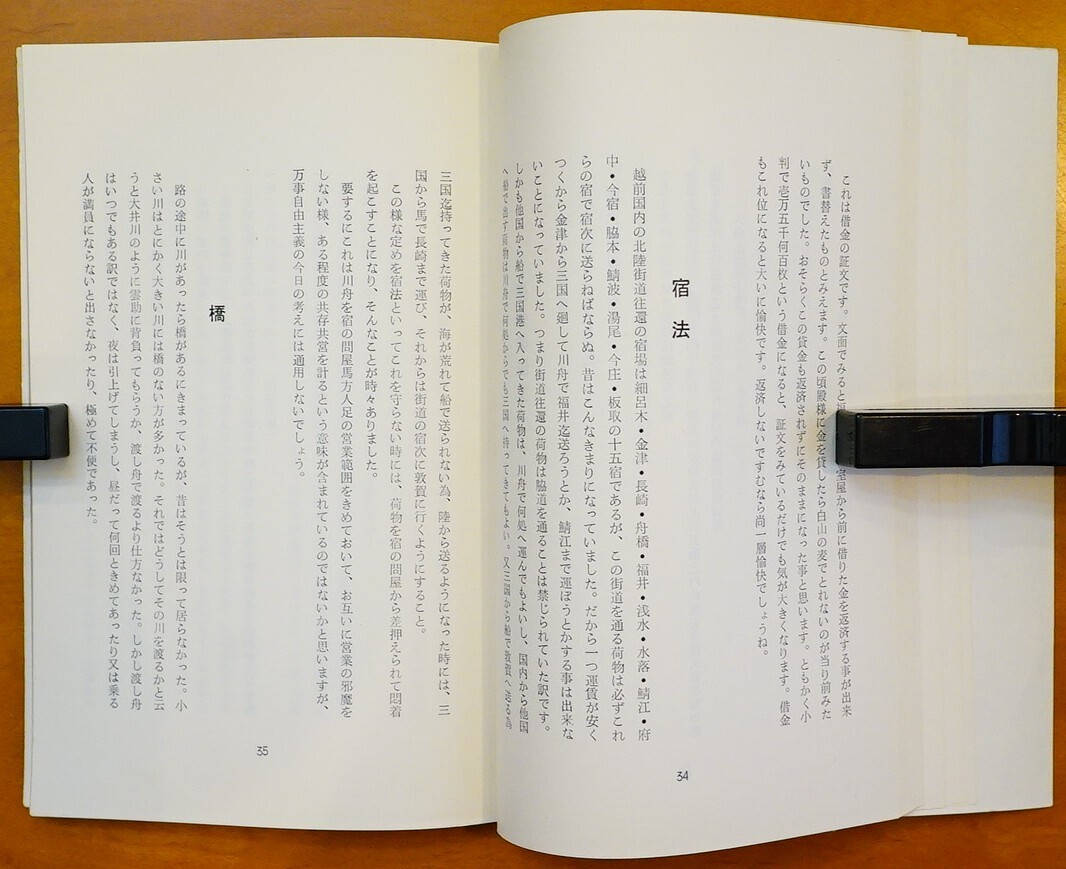 これは借金の証文です。文面でみると 室屋から前に借りた金を返済する事が出来
ず、書替えたものとみえます。この頃殿様に金を貸したら白山の麦でとれないのが当り前みた
いものでした。おそらくこの貸金も返済されずにそのままになった事と思います。ともかく小
判で壱万五千何百枚という借金になると、証文をみているだけでも気が大きくなります。借金
もこれ位になると大いに愉快です。返済しないですむなら尚一層愉快でしょうね。
宿法
越前国内の北陸街道往還の宿場は細呂木・金津・長崎・舟橋・福井・浅水・水落・鯖江・府
中・今宿・脇本・鯖波・湯尾・今庄・板取の十五宿であるが、この街道を通る荷物は必ずこれ
らの宿で宿次に送らねばならぬ。昔はこんなきまりになっていました。だから一つ運賃が安く
つくから金津から三国へ廻して川舟で福井迄送ろうとか、鯖江まで運ぼうとかする事は出来な
いことになっていました。つまり街道往還の荷物は脇道を通ることは禁じられていた訳です。
しかも他国から船で三国港へ入ってきた荷物は、川舟で何処へ運んでもよいし、国内から他国
へ船で出す荷物は川舟で何処からでも三国へ持ってきてもよい。又三国から船で敦賀へ送る為
34
三国迄持ってきた荷物が、海が荒れて船で送られない為、陸から送るようになった時には、三
国から馬で長崎まで運び、それからは街道の宿次に敦賀に行くようにすること。
この様な定めを宿法といってこれを守らない時には、荷物を宿の問屋から差押えられて悶着
を起こすことになり、そんなことが時々ありました。
要するにこれは川舟を宿の問屋馬方人足の営業範囲をきめておいて、お互いに営業の邪魔を
しない様、ある程度の共存共営を計るという意味が含まれているのではないかと思いますが、
万事自由主義の今日の考えには通用しないでしょう。
橋
路の途中に川があったら橋があるにきまっているが、昔はそうとは限って居らなかった。小
さい川はとにかく大きい川には橋のない方が多かった。それではどうしてその川を渡るかと云
うと大井川のように雲助に背負ってもらうか、渡し舟で渡るより仕方なかった。しかし渡し舟
はいつでもある訳ではなく、夜は引上げてしまうし、昼だって何回ときめてあったり又は乗る
人が満員にならないと出さなかったり、極めて不便であった。
35